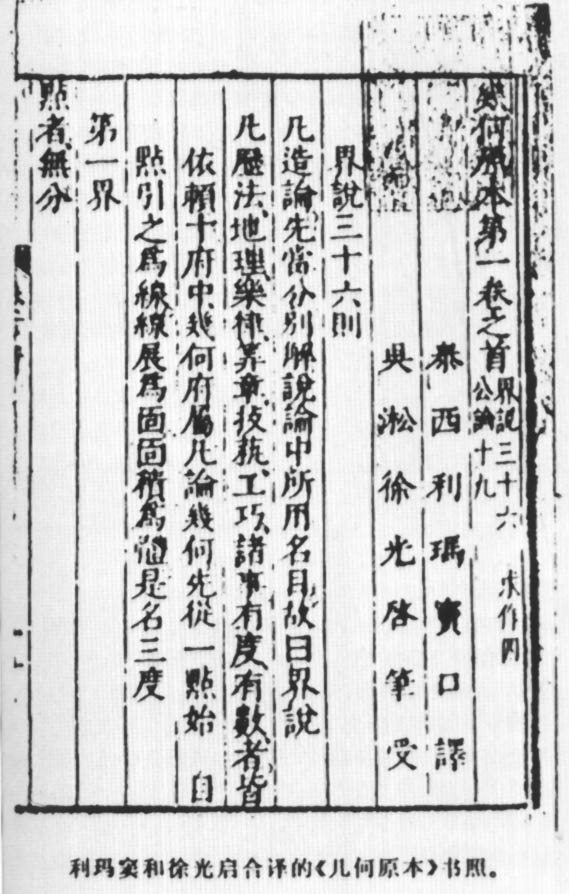 幾何原本第一卷之首 界說三十六 公論十九 求作四
泰西利瑪竇口譯
吳淞徐光啓筆受
界說三十六則
凡造論先當分別解說論中所用名目故曰界說
凡歷法地理樂律筭章技藝工巧諸事有度有數者皆
依賴十府中幾何府屬凡論幾何先從一點始自
點引之為線線展為面面積為體是名三度
第一界
點者無分
利玛窦和徐光启合译的《几何原本》书照。